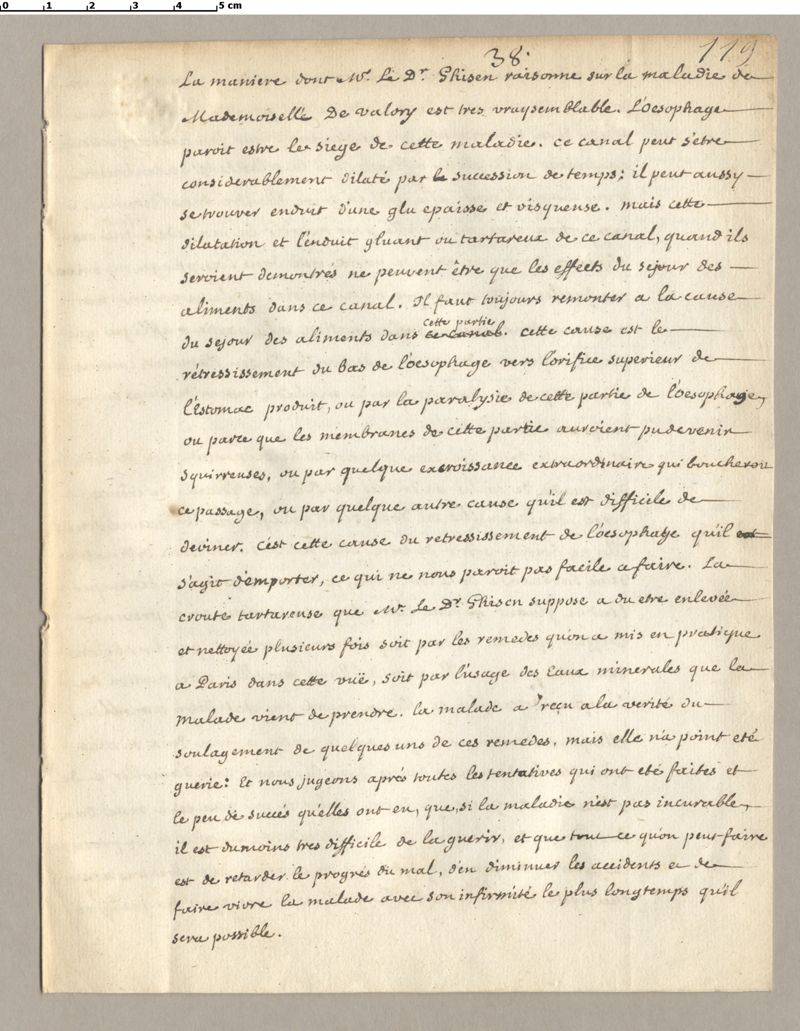 0 1 2 3 4 5 cm
38.
119
La maniere dont Mr. Le Dr. Ghisen raisonne sur la maladie de
Mademoiselle De Valory est tres vraysemblable. L'oesophage
paroit estre le siege de cette maladie. ce canal peut s'etre
considerablement dilaté par le succession de temps; il peut aussy
se trouver enduit d'une glu epaisse et visqueuse. mais cette
dilatation et l'enduit gluant ou tartareux de ce canal, quand ils
seroient demontrés ne peuvent être que les effects du sejour des
aliments dans ce canal. Il faut toujours remonter a la cause
du sejour des aliments dans ce canal cette partie. cette cause est le
rétressissement du bas de l'oesophage vers l'orifice superieur de
l'Estomac produit, ou par la paralysie de cette partie de l'oesophage,
ou parce que les membranes de cette partie auroient pu devenir
squirreuses, ou par quelque excroissance extraordinaire qui boucheroit
ce passage, ou par quelque autre cause qu'il est difficile de
deviner. c'est cette cause du retressissement de l'oesophage qu'il est
s'agit d'emporter, ce qui ne nous paroit pas facile a faire. La
croute tartareuse que Mr. Le Dr. Ghisen suppose a du etre enlevée
et nettoyée plusieurs fois soit par les remedes qu'on a mis en pratique
a Paris dans cette vuë, soit par l'usage des Eaux minerales que la
malade vient de prendre. la malade a reçu a la verité du
soulagement de quelques uns de ces remedes, mais elle n'a point eté
guerie: Et nous jugeons aprés toutes les tentatives qui ont eté faites et
le peu de succés qu'elles ont eu, que, si la maladie n'est pas incurable,
il est dumoins tres difficile de la guerir, et que tout ce qu'on peut faire
est de retarder le progrés du mal, d'en diminuer les accidents et de
faire vivre la malade avec son infirmité le plus longtemps qu'il
sera possible.